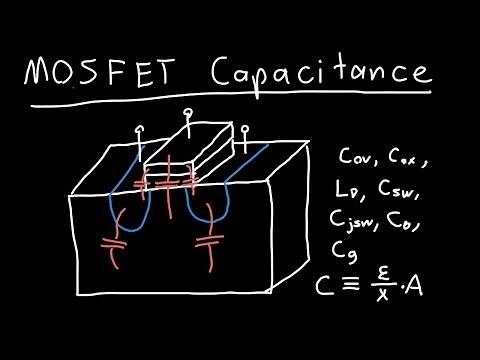 MOSFET Capacitance
Cov, Cox,
LD, Csw,
Cjsw, Cb,
Cg
C ≡ ε/x · A